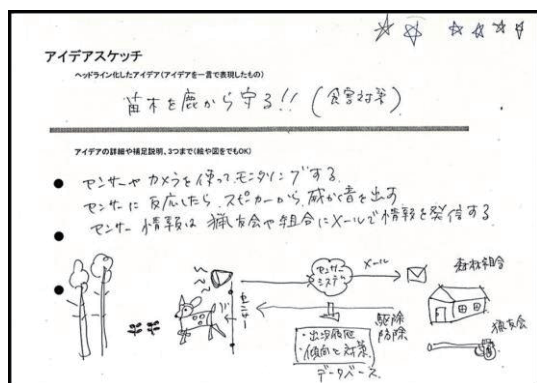 アイデアスケッチ
ヘッドライン化したアイデア(アイデアを一言で表現したもの)
苗木を鹿から守る!! (食害対策)
アイデアの詳細や補足説明、3つまで(絵や図をでもOK)
● センサーやカメラを使ってモニタリングする
センサーに反応したら、スピーカーから、威かく音を出す
● センサー情報は猟友会や組合にメールで情報を発信する
●
センサー
センサーシステム
メール
森林組合
駆除
防除
猟友会
・出没履歴
・傾向と対策
データベース